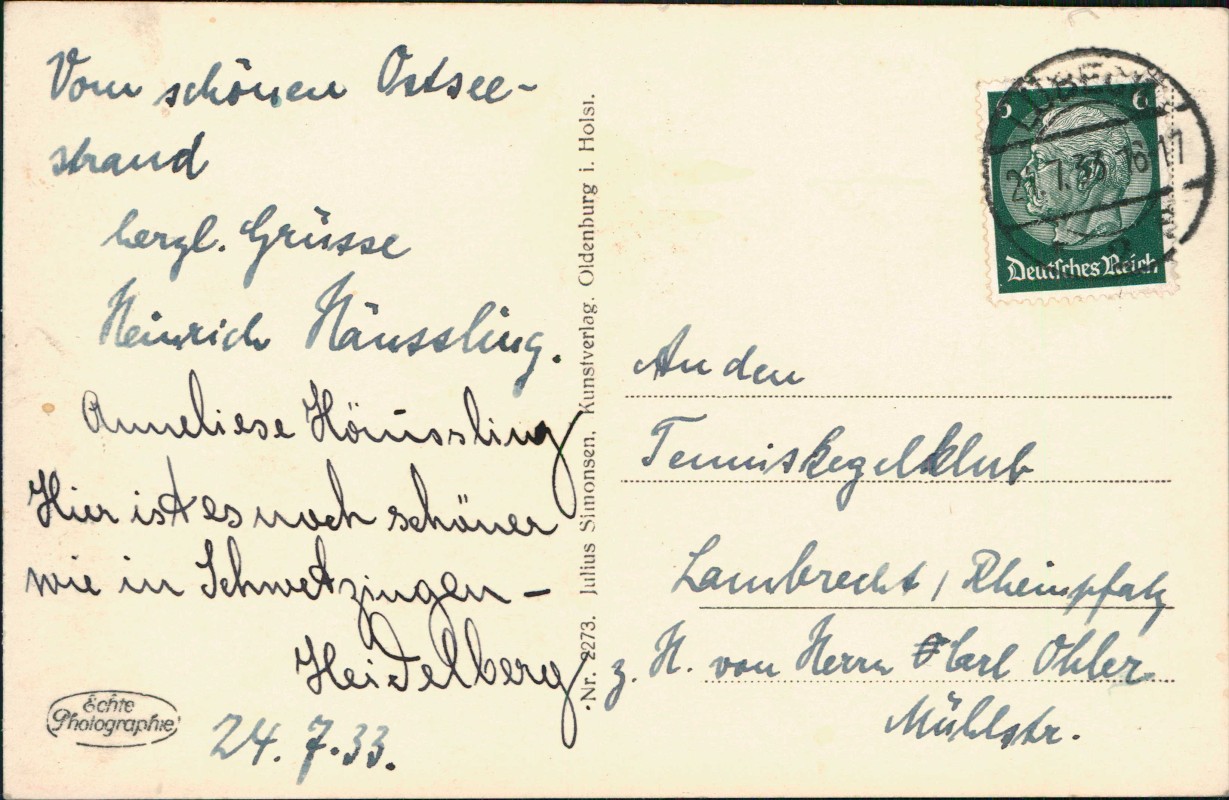 Vom schönen Ostsee-
strand
herzl. Grüsse
Heinrich Häussling.
Anneliese Häussling
Hier ist es noch schöner
wie in Schwetzingen -
Heidelberg
24. 7. 33.
Echte
Photographie
Nr. 2273. Julius Simonsen, Kunstverlag. Oldenburg i. Holst.
6 6
LÜBECK
7.33. 16-17
2
Deutsches Reich
An den
Tenniskegelklub
Lambrecht / Rheinpfalz
z. H. von Herrn Carl Ohler
Mühlstr.